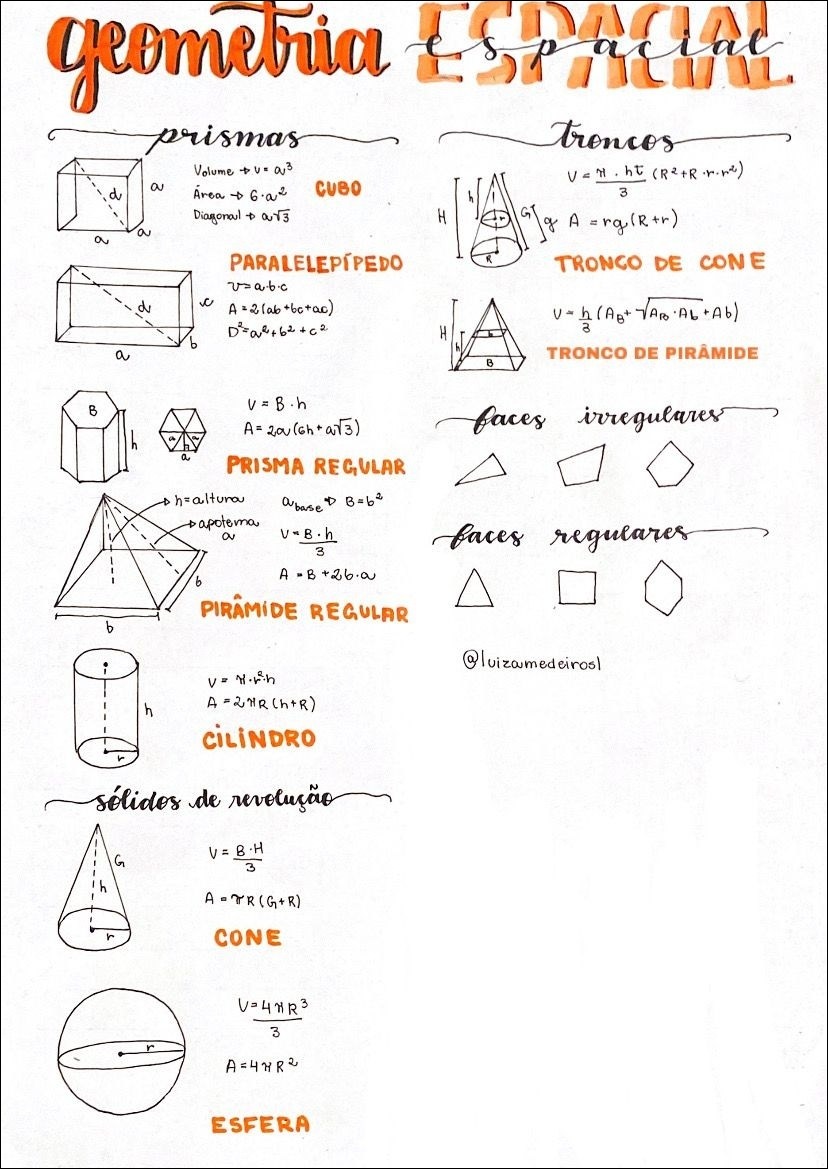 geometria ESPACIAL
espacial
prismas
d
a
a
a
Volume → V = a³
Área → 6·a²
Diagonal → a√3
CUBO
PARALELEPÍPEDO
d
c
b
a
V = a·b·c
A = 2(ab+bc+ac)
D² = a²+b²+c²
B
h
a
a
h
a
V = B·h
A = 2a(6h+a√3)
PRISMA REGULAR
h=altura
apotema
a
b
b
a base → B=b²
V = B·h/3
A = B+2b·a
PIRÂMIDE REGULAR
h
r
V = π·r²·h
A = 2πR(h+R)
CILINDRO
sólidos de revolução
G
h
r
V = B·H/3
A = πR(G+R)
CONE
r
V = 4πR³/3
A = 4πR²
ESFERA
troncos
H
h
r
G
g
R
V = π·ht/3 (R²+R·r·r²)
A = rg(R+r)
TRONCO DE CONE
H
h
b
B
V = h/3 (AB+√AB·Ab+Ab)
TRONCO DE PIRÂMIDE
faces irregulares
faces regulares
@luizamedeiros1